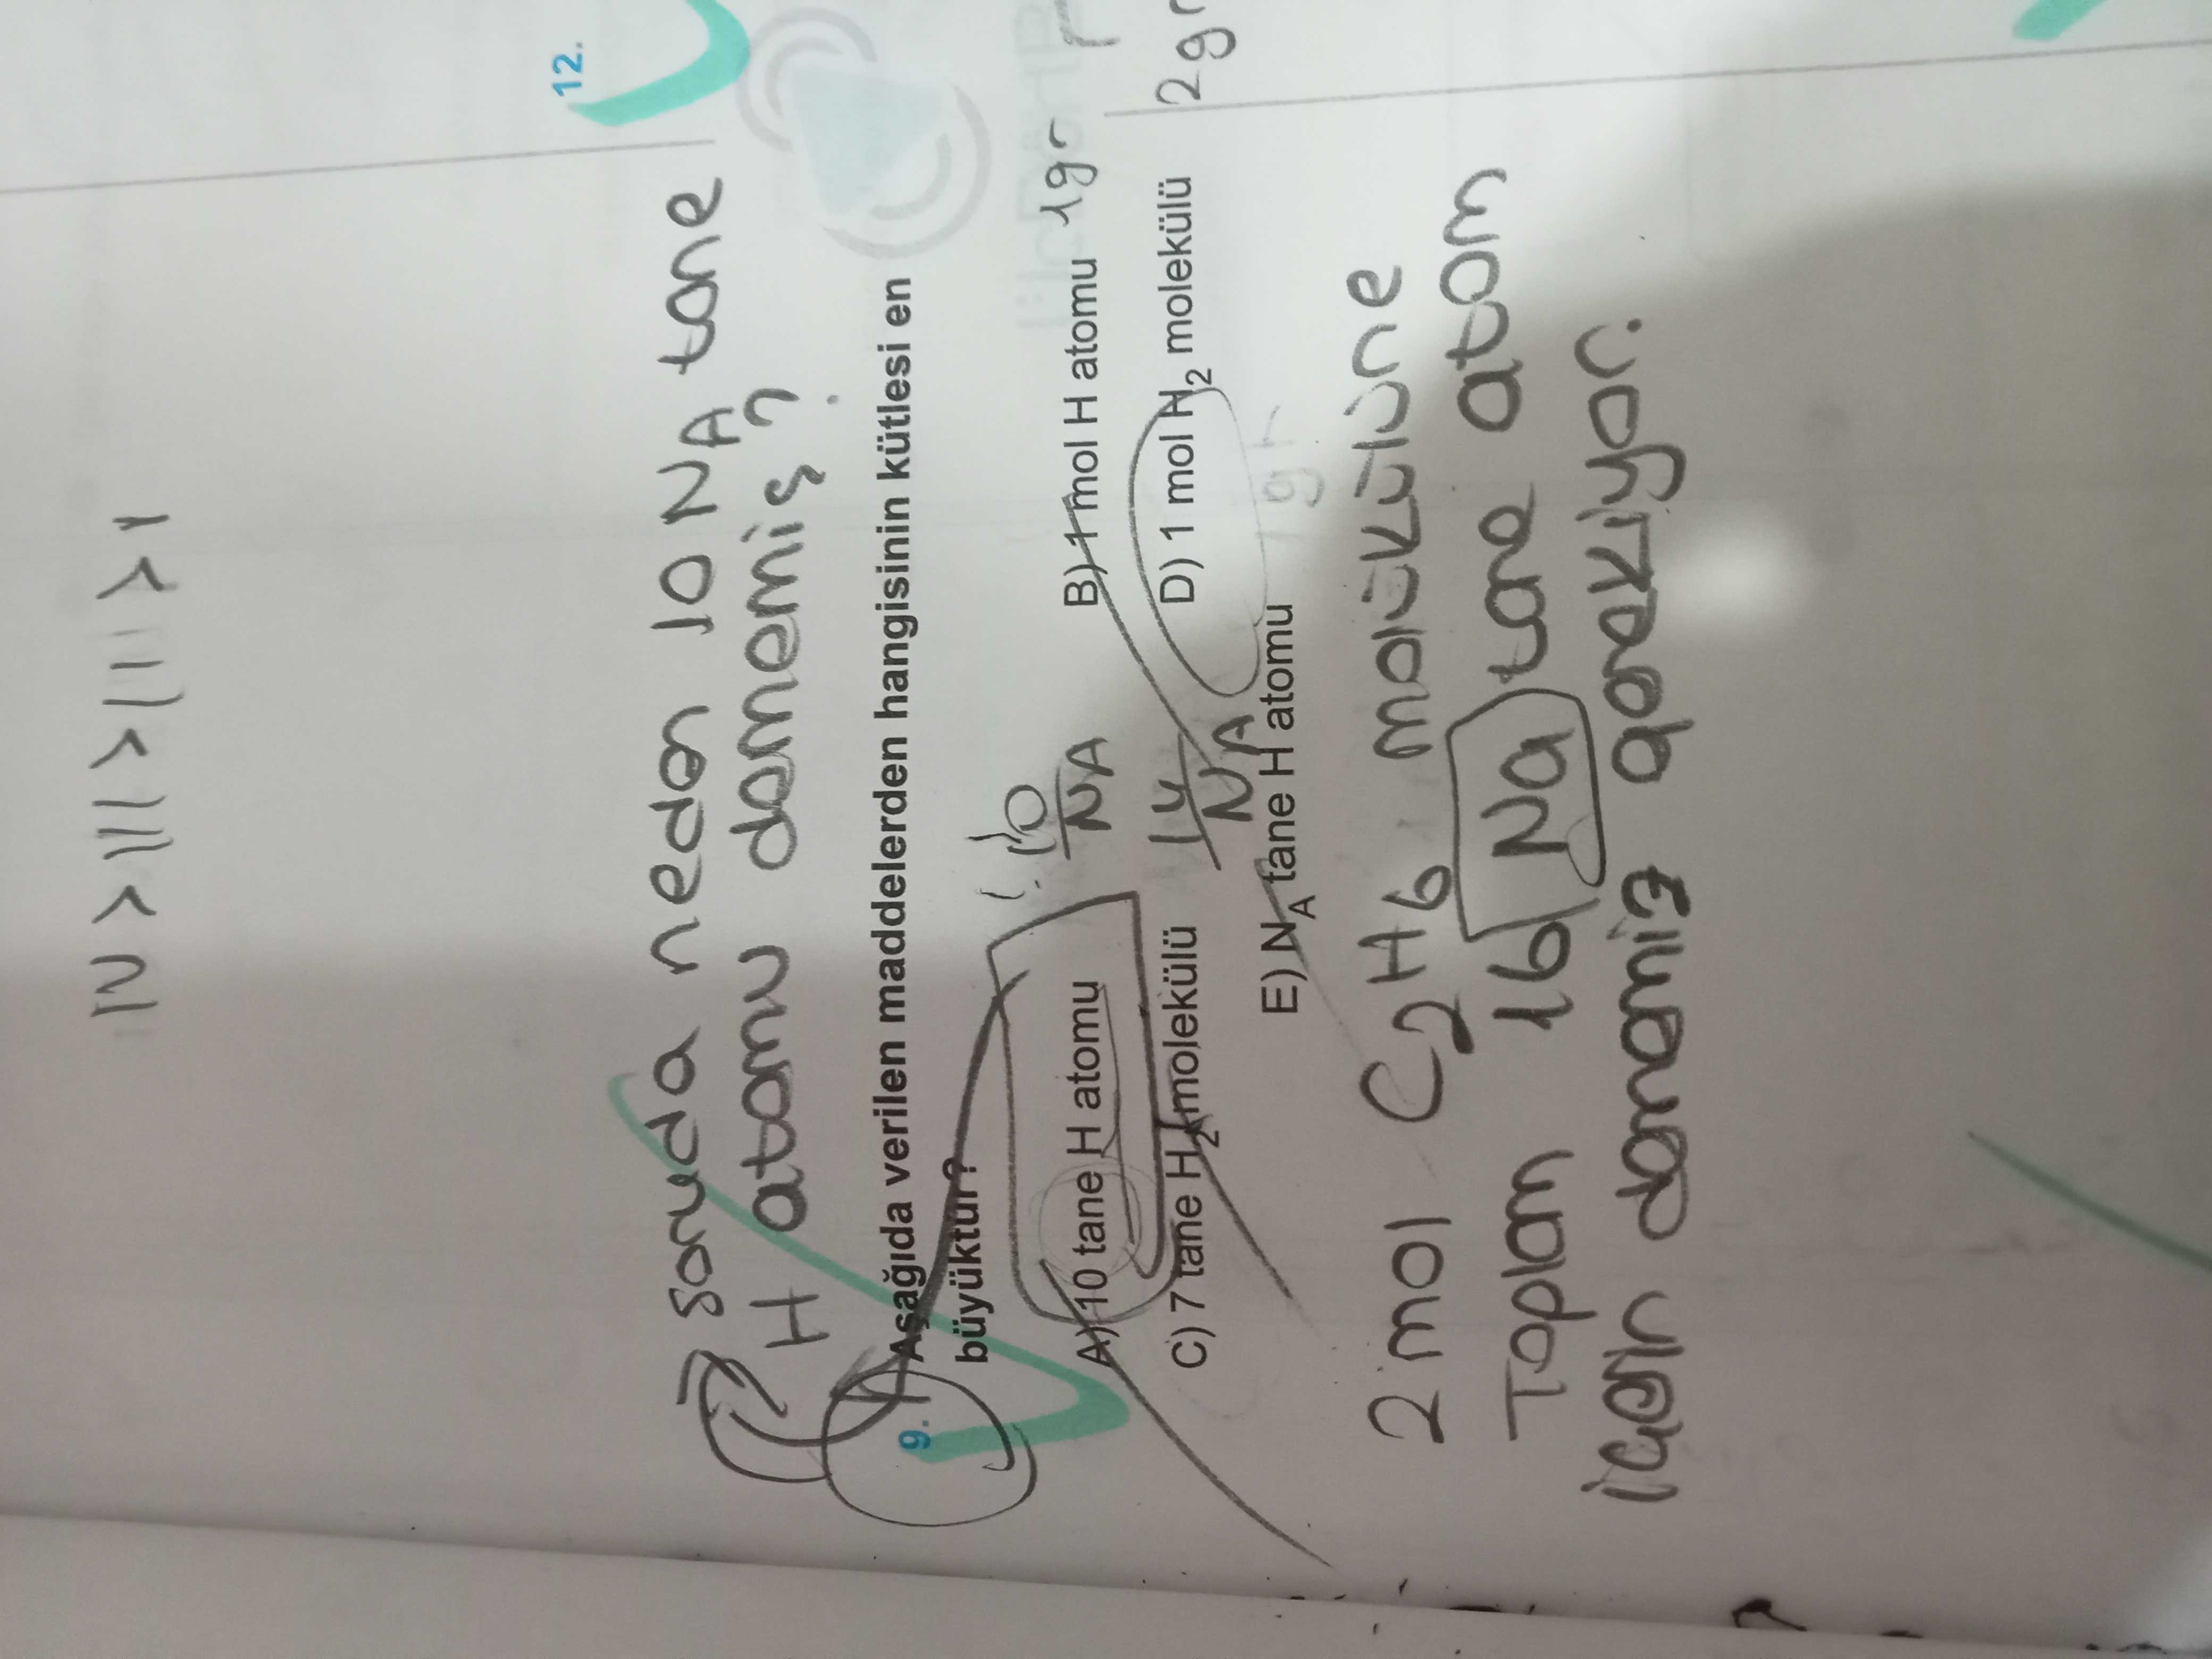 IV > III > II > I
12.
soruda neden 10 NA tane
H atomu dememiş?
9. Aşağıda verilen maddelerden hangisinin kütlesi en
büyüktür?
A) 10 tane H atomu 10/NA
B) 1 mol H atomu 1gr
C) 7 tane H2 molekülü 14/NA
D) 1 mol H2 molekülü 2gr
E) NA tane H atomu 1gr
2 mol C2H6 molekülüne
Toplam 16 Na tane atom
için dememiz gerekiyor.